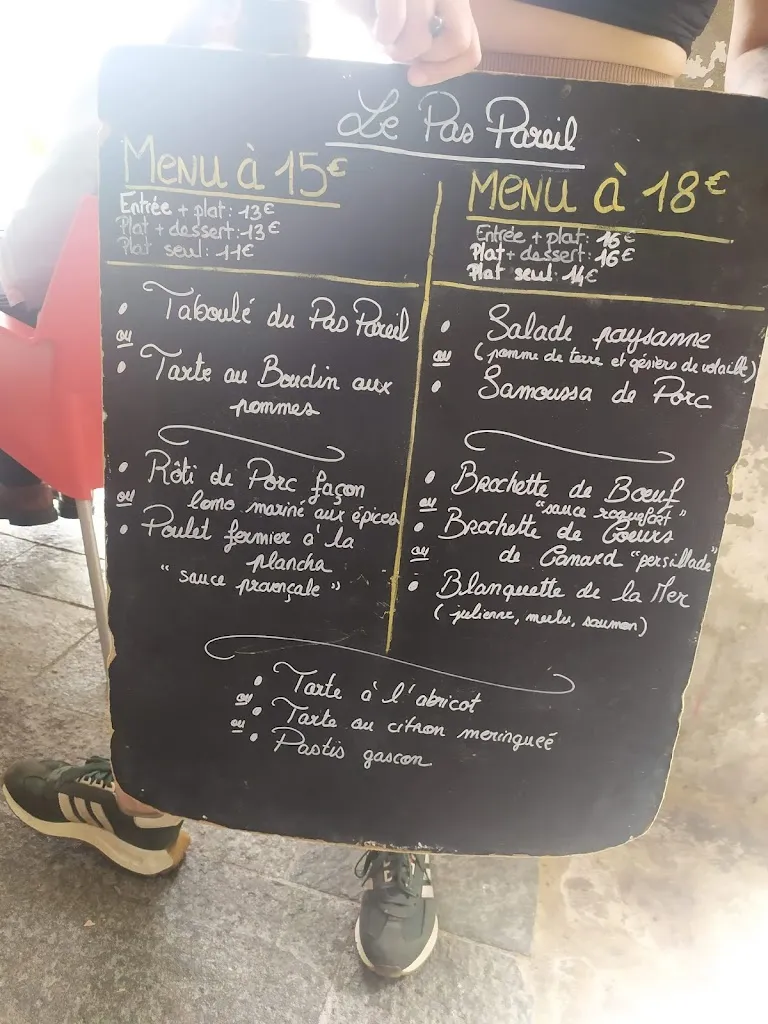 Le Pas Pareil
Menu à 15€
Entrée + plat: 13€
Plat + dessert: 13€
Plat seul: 11€
• Taboulé du Pas Pareil
ou
• Tarte au Boudin aux
pommes
• Rôti de Porc façon
lomo mariné aux épices
ou
• Poulet fermier à la
plancha
"sauce provençale"
Menu à 18€
Entrée + plat: 16€
Plat + dessert: 16€
Plat seul: 14€
• Salade paysanne
ou (pomme de terre et gésiers de volaille)
• Samoussa de Porc
• Brochette de Bœuf
ou "sauce roquefort"
• Brochette de Coeurs
ou de Canard "persillade"
• Blanquette de la Mer
(julienne, merlu, saumon)
• Tarte à l'abricot
ou
• Tarte au citron meringueé
ou
• Pastis gascon